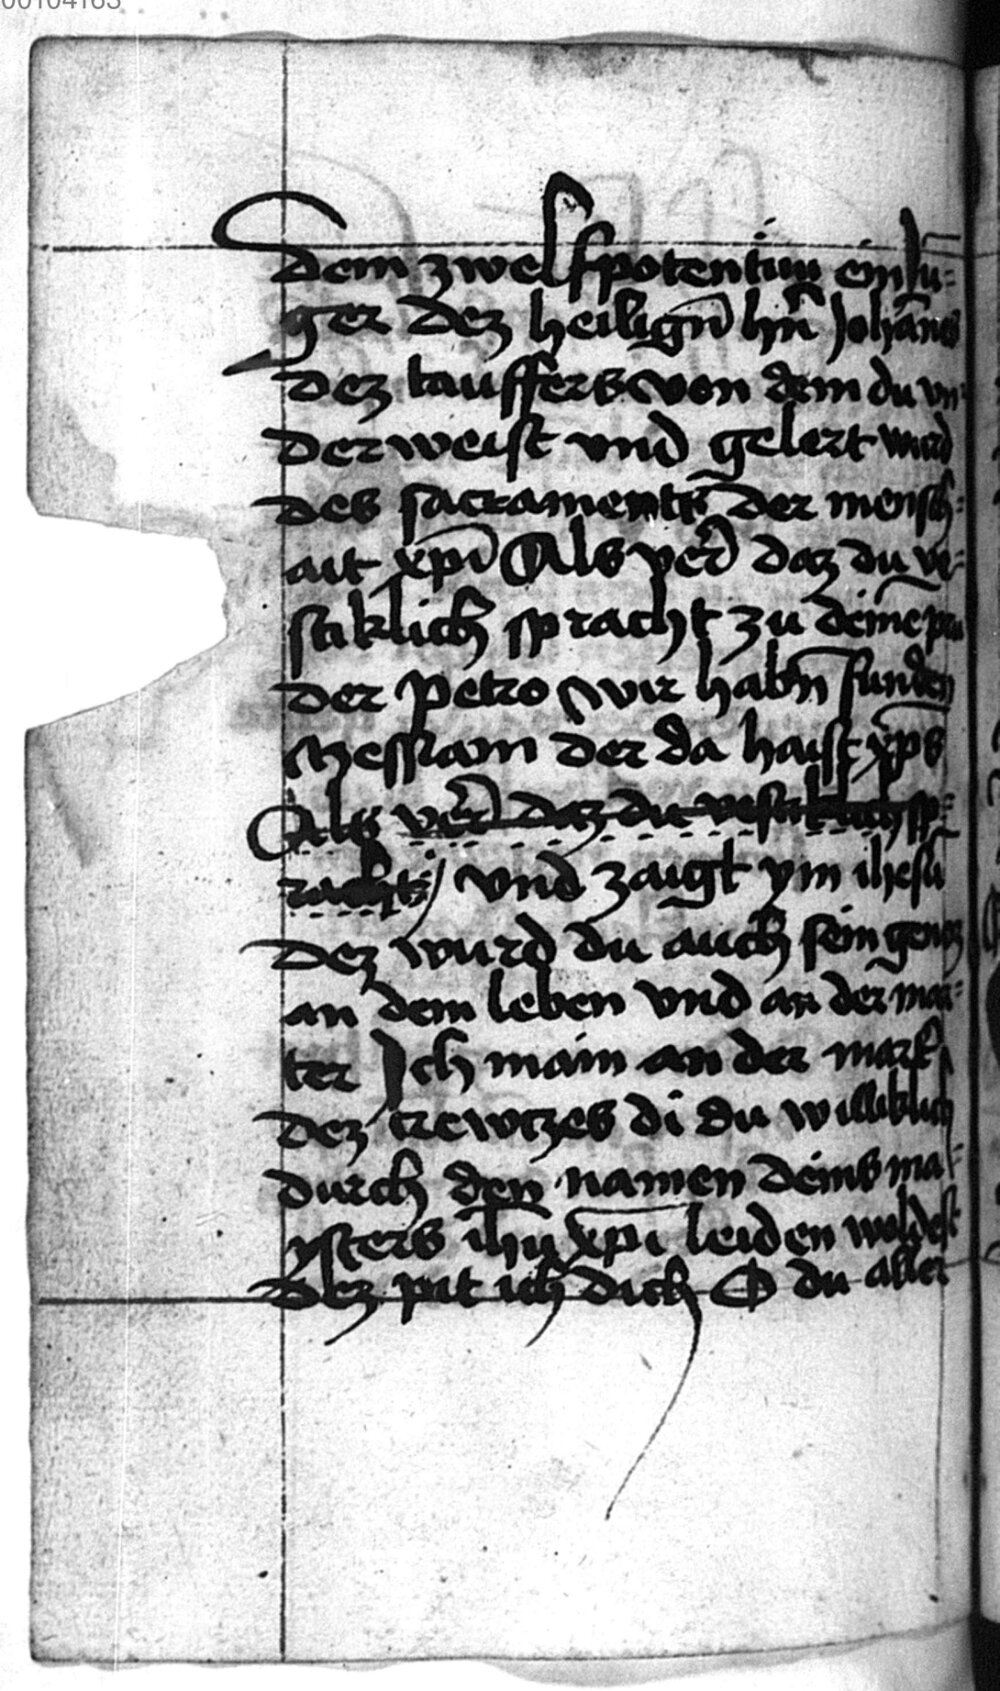 00104163
dem zwelfpotentum ein iu⸗
ger dez heilign̄ hn̄ Johānes
dez tauffers von dem du vn⸗
derweist vnd gelert wurd
des sacraments der mensch⸗
ait xp̄i Als ver̄ daz du ve⸗
stiklich spracht zu deinē pru
der Petro wir habn̄ funden
Messiam der da haist xp̄s
Als ver̄ daz du vestiklich sp⸗
racht vnd zaigt ym ihesū
Dez wurd du auch sein genoz
an dem leben vnd an der mar⸗
ter Ich main an der mart̄
dez crewtzes di du williklich
durch den namen deins ma⸗
ysters ihū xp̄i leiden woldest
Dez pit ich dich O du aller